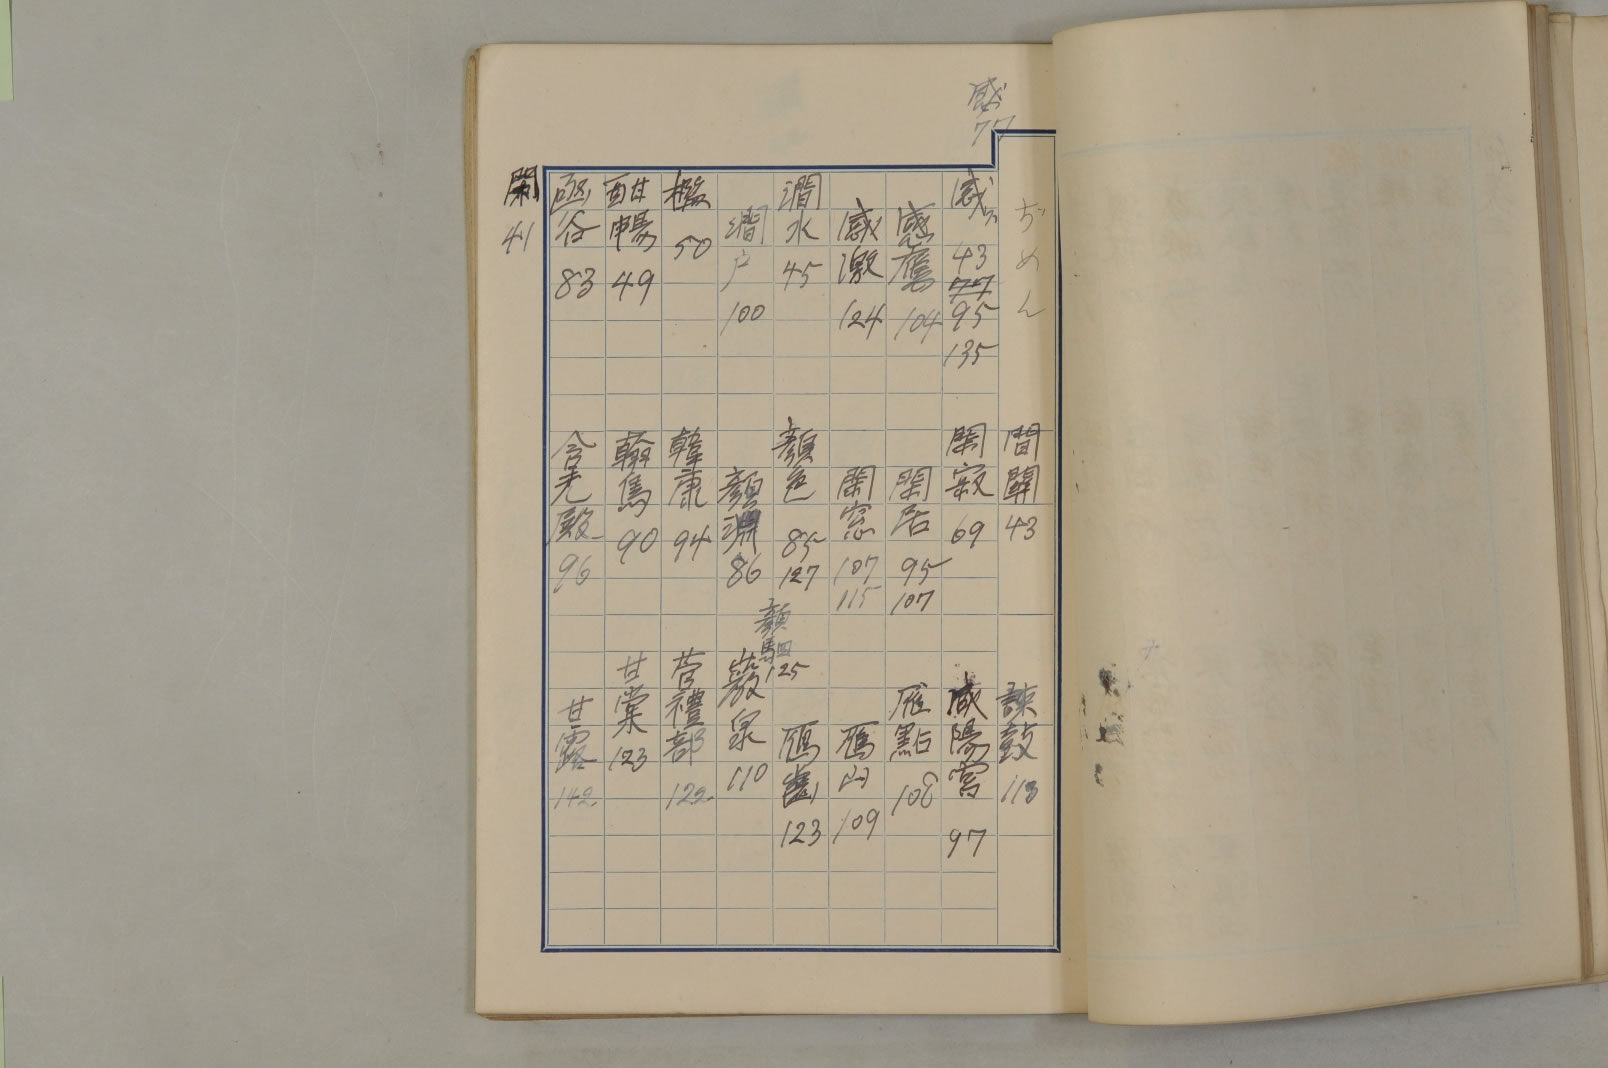 感
77
感 43 77 95 135
感應 104
感激 124
澗水 45
澗戸 100
檻 50
酣暢 49
函谷 83
閑 41
間關 43
閑寂 69
閑居 95 107
閑窓 107 115
顏色 85 127
顏淵 86
顏駟 125
韓康 94
翰馬 90
含光殿 96
諫鼓 113
咸陽宮 97
雁點 108
鴈山 109
鴈齒 123
巖泉 110
菅禮部 122
甘棠 123
甘露 142